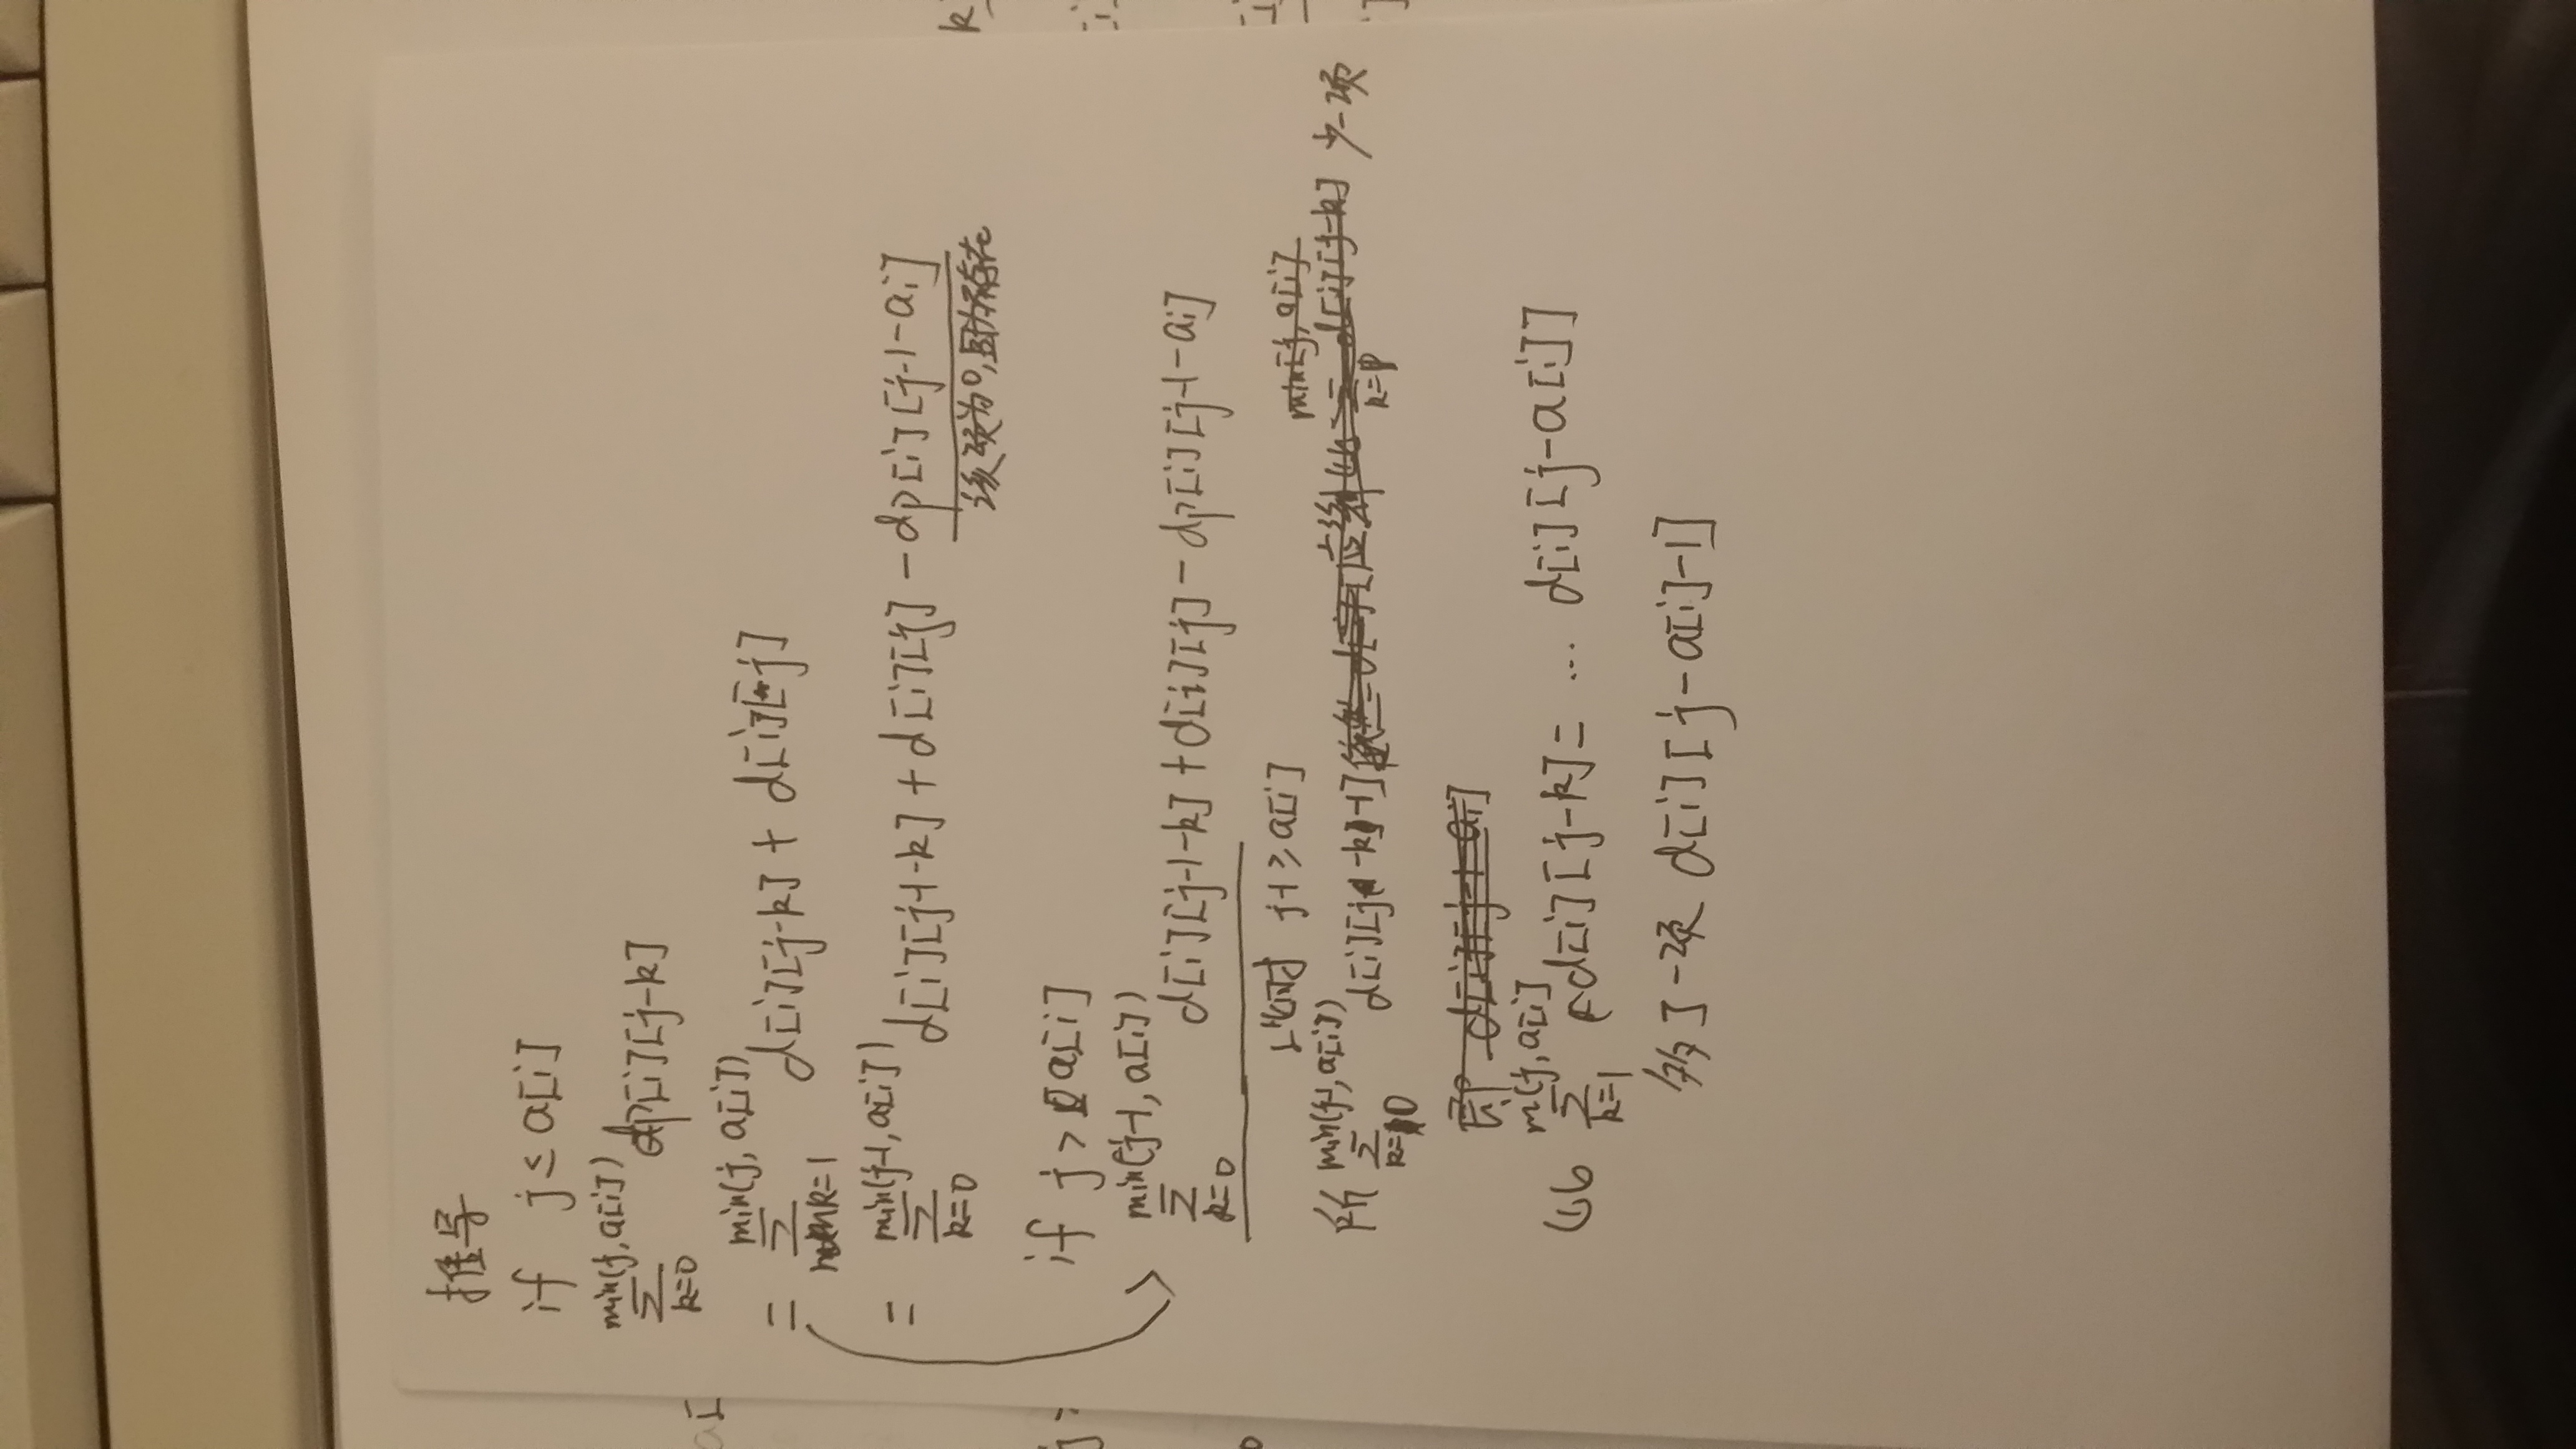 推导
if j ≤ a[i]
min(j, a[i])
∑ dp[i][j-k]
k=0
min(j, a[i])
= ∑ d[i][j-k] + d[i][j]
k=1
min(j-1, a[i])
= ∑ d[i][j-1-k] + d[i][j] - dp[i][j-1-ai]
k=0
该项为0,因为不存在
if j > a[i]
min(j-1, a[i])
∑ d[i][j-1-k] + d[i][j] - dp[i][j-1-ai]
k=0
此时 j-1 ≥ a[i]
min(j-1, a[i])
所 ∑ d[i][j-k-1] 少一项
k=0
即
m(j, a[i]
比 ∑ d[i][j-k] = ... d[i][j-a[i]]
k=1
多了一项 d[i][j-a[i]-1]